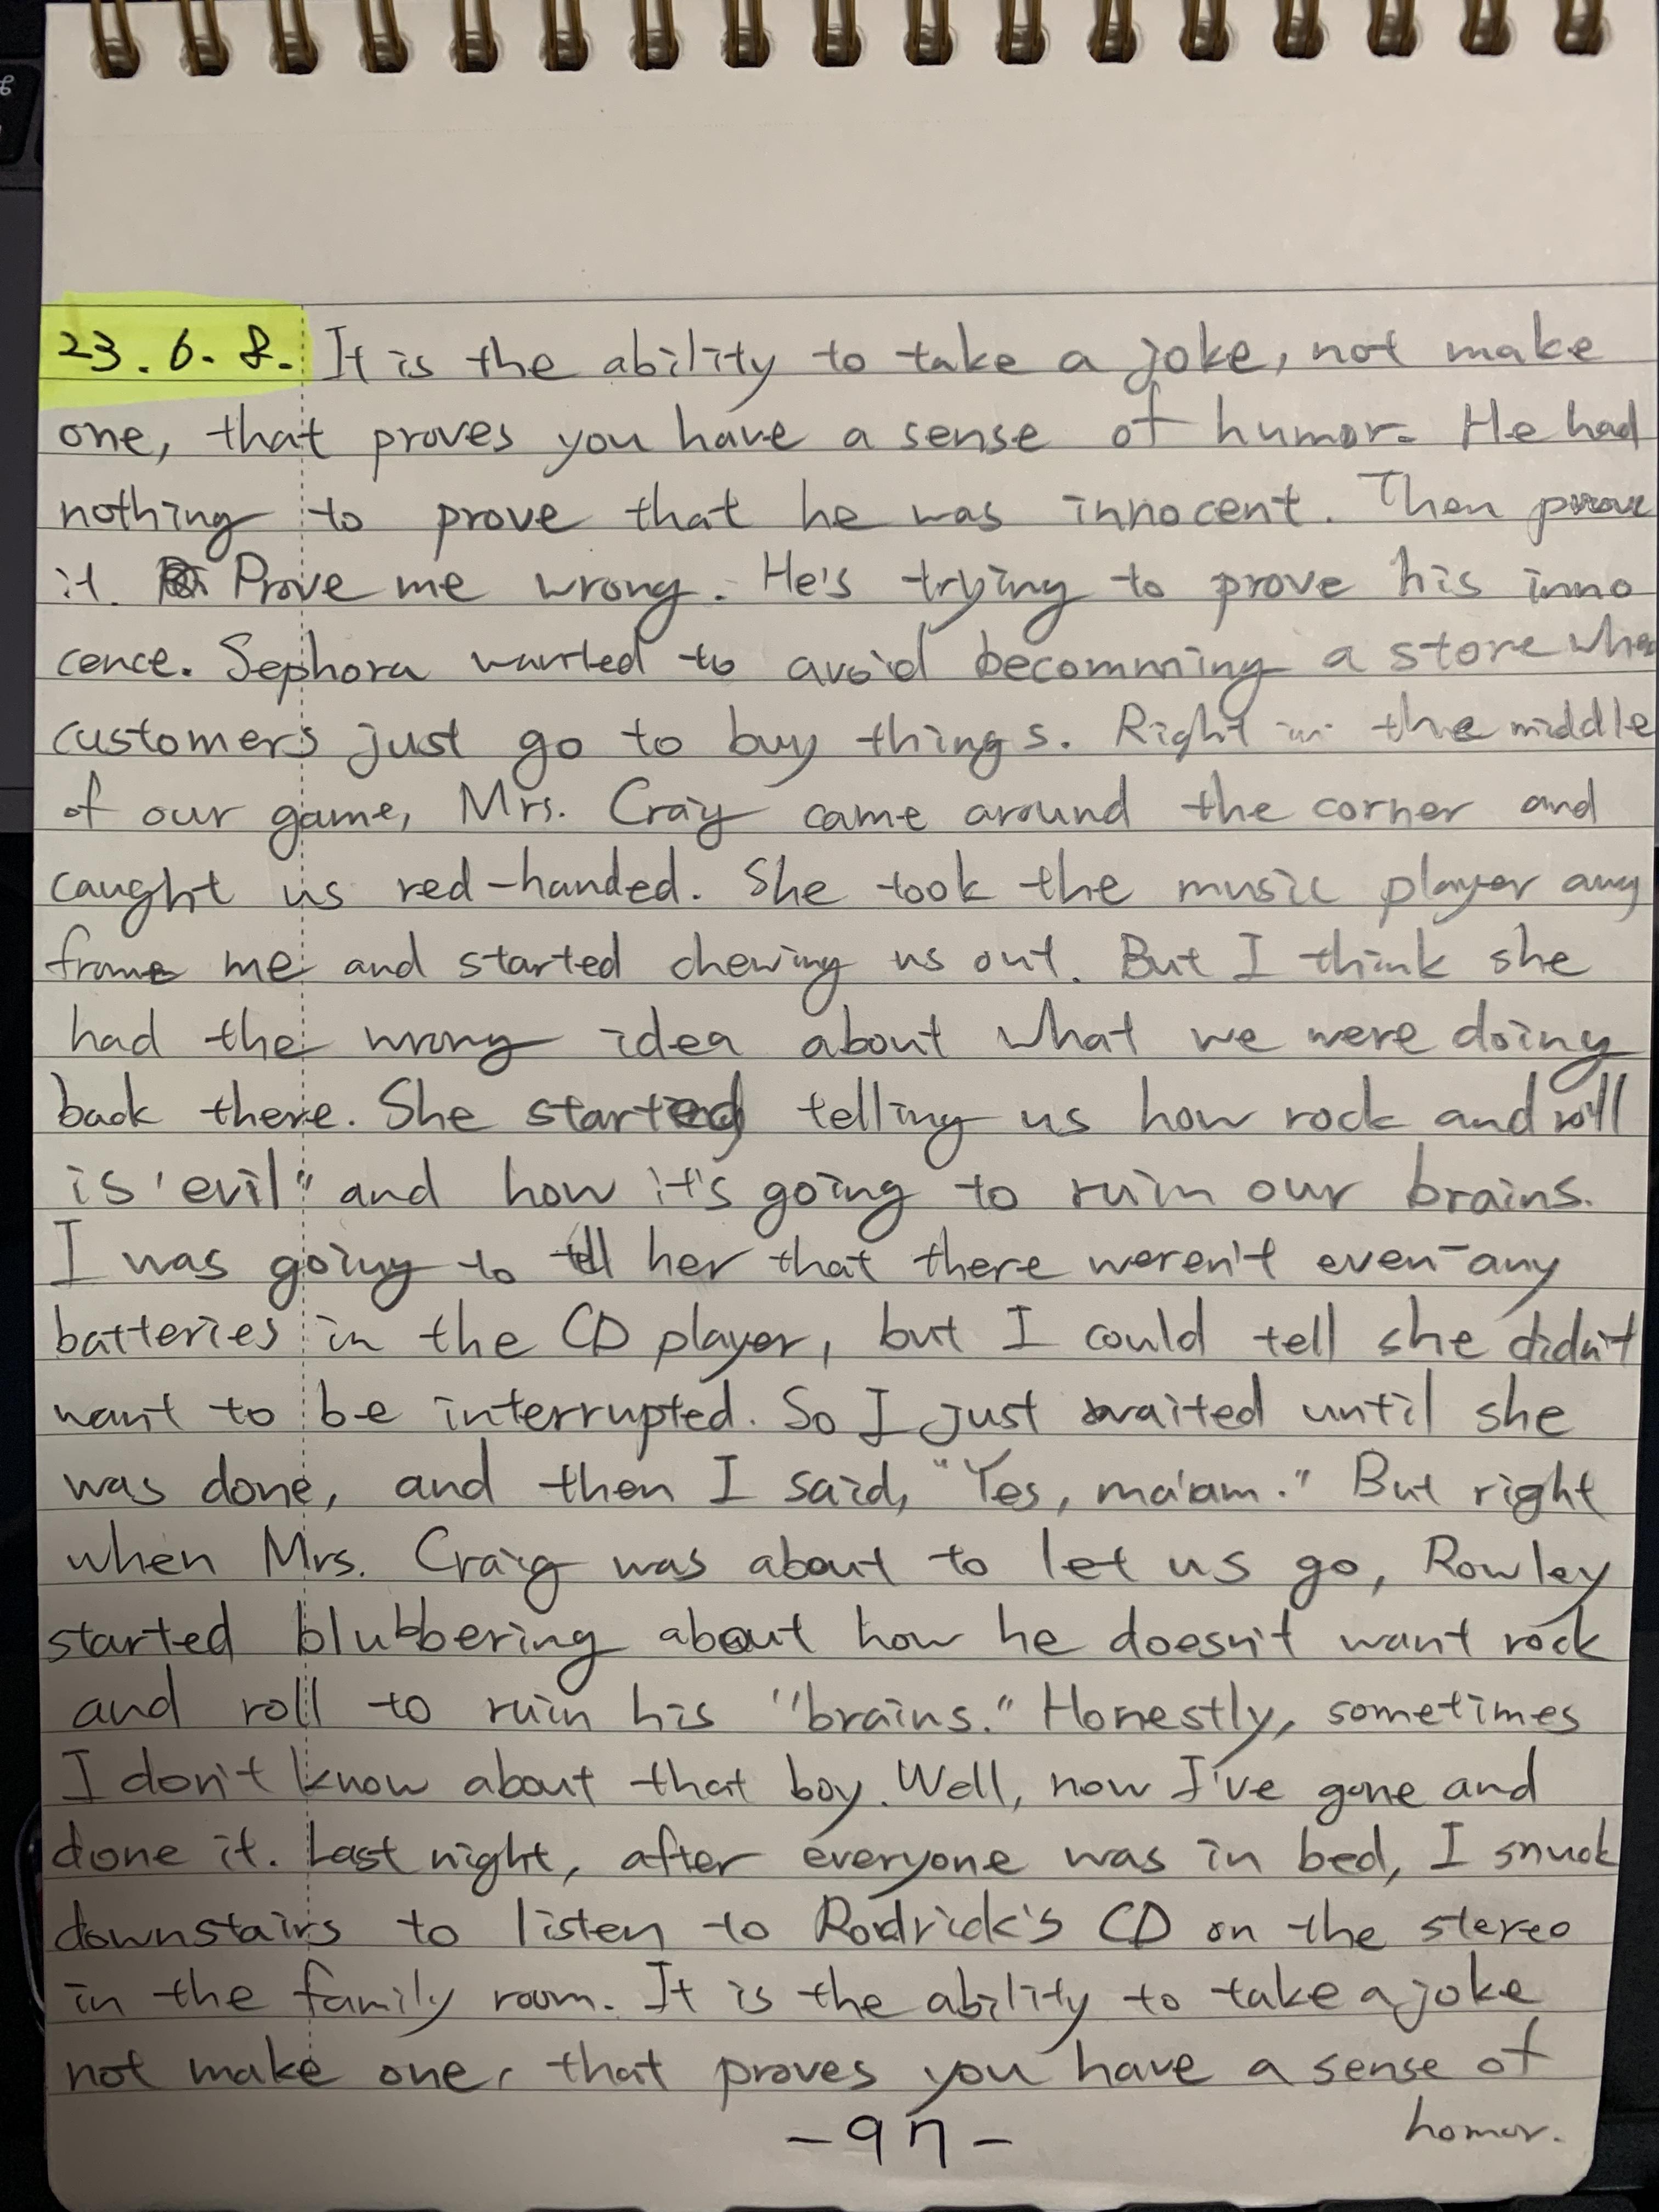 23.6.8. It is the ability to take a joke, not make
one, that proves you have a sense of humor. He had
nothing to prove that he was innocent. Then prove
it. Prove me wrong. He's trying to prove his inno
cence. Sephora wanted to avoid becomming a store
customers just go to buy things. Right in the middle
of our game, Mrs. Craig came around the corner and
caught us red-handed. She took the music player
from me and started chewing us out. But I think she
had the wrong idea about what we were doing
back there. She started telling us how rock and roll
is 'evil" and how it's going to ruin our brains.
I was going to tell her that there weren't even any
batteries in the CD player, but I could tell she didn't
want to be interrupted. So I just waited until she
was done, and then I said, "Yes, ma'am." But right
when Mrs. Craig was about to let us go, Rowley
started blubbering about how he doesn't want rock
and roll to ruin his "brains." Honestly, sometimes
I don't know about that boy. Well, now I've gone and
done it. Last night, after everyone was in bed, I snuck
downstairs to listen to Rodrick's CD on the stereo
in the family room. It is the ability to take a joke
not make one, that proves you have a sense of
homor.
-97-